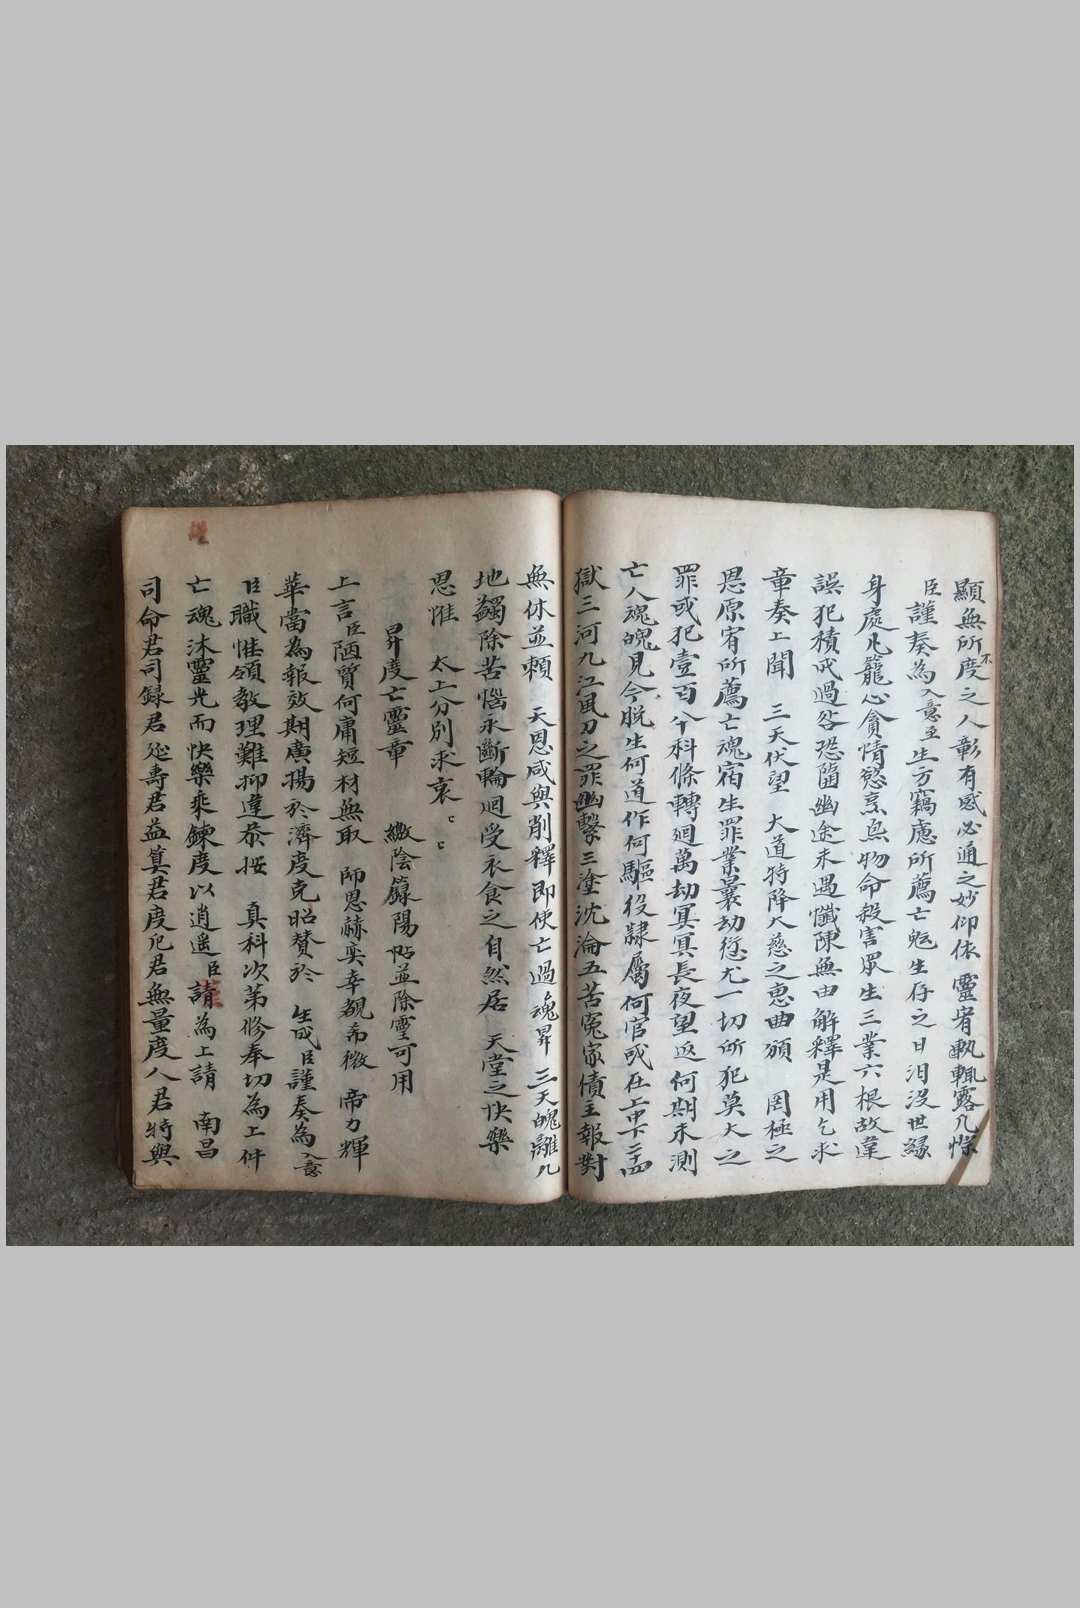 顯無所不度之人彰有感必通之妙仰依 靈宥輒露凡悰
臣謹奏為入意至生方竊慮所薦亡魂生存之日汨沒世緣
身處凡籠心貪情慾烹炰物命殺害眾生三業六根故違
誤犯積成過咎恐墮幽途未遇懺陳無由解釋是用乞求
章奏上聞 三天伏望 大道特降大慈之惠曲頒 罔極之
恩原宥所薦亡魂宿生罪業曩劫愆尤一切所犯莫大之
罪或犯壹百八十科條轉廻萬劫冥冥長夜望返何期未測
亡人魂魄見今脫生何道作何驅役隸屬何官或在上中下二十四
獄三河九江風刀之罪幽繫三塗沈淪五苦冤家債主報對
無休並賴 天恩咸與削釋即使亡過魂昇 三天魄離九
地蠲除苦惱永斷輪迴受衣食之自然居 天堂之快樂
恩惟 太上分別求哀
昇度亡靈章 繳陰籙陽帖並除靈可用
上言臣陋質何庸短材無取 師恩赫奕幸覩希微 帝力輝
華當為報效期廣揚於濟度克昭贊於 生成臣謹奏為入意
臣職惟領教理難抑違恭按 真科次第修奉切為上件
亡魂沐靈光而快樂乘鍊度以逍遥臣請為上請 南昌
司命君司録君延壽君益算君度厄君無量度人君特與